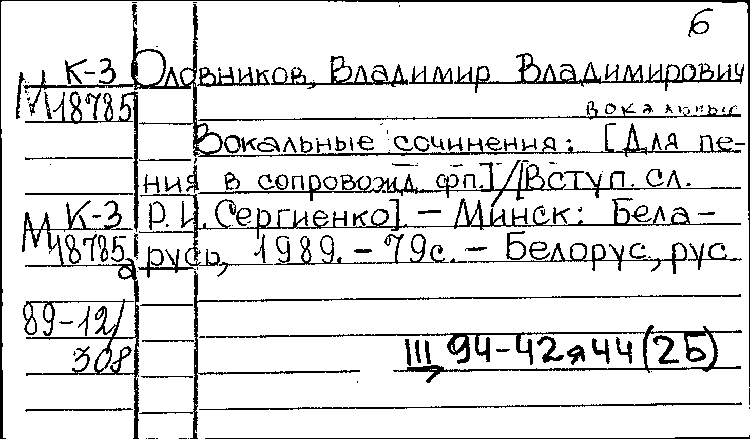 6
К-3 Оловников, Владимир Владимирович
М 18785 вокальные
Вокальные сочинения: [Для пе-
ния в сопровожд. фп] / [Вступ. сл.
К-3 Р.И. Сергиенко]. – Минск: Бела-
М 18785а русь, 1989. – 79с. – Белорус, рус
89-12/
308 III 94-42я44(2Б)